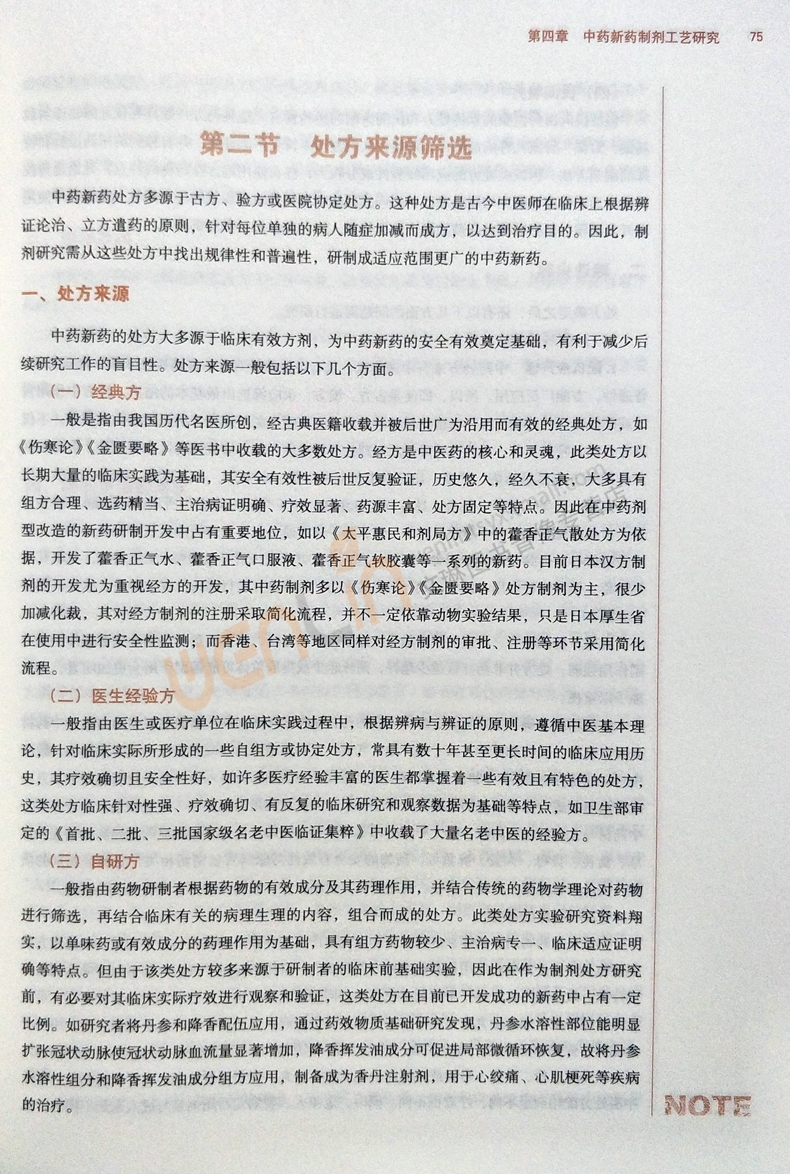 第四章 中药新药制剂工艺研究 75
第二节 处方来源筛选
中药新药处方多源于古方、验方或医院协定处方。这种处方是古今中医师在临床上根据辨
证论治、立方遣药的原则，针对每位单独的病人随症加减而成方，以达到治疗目的。因此，制
剂研究需从这些处方中找出规律性和普遍性，研制成适应范围更广的中药新药。
一、处方来源
中药新药的处方大多源于临床有效方剂，为中药新药的安全有效奠定基础，有利于减少后
续研究工作的盲目性。处方来源一般包括以下几个方面。
（一）经典方
一般是指由我国历代名医所创，经古典医籍收载并被后世广为沿用而有效的经典处方，如
《伤寒论》《金匮要略》等医书中收载的大多数处方。经方是中医药的核心和灵魂，此类处方以
长期大量的临床实践为基础，其安全有效性被后世反复验证，历史悠久，经久不衰，大多具有
组方合理、选药精当、主治病证明确、疗效显著、药源丰富、处方固定等特点。因此在中药剂
型改造的新药研制开发中占有重要地位，如以《太平惠民和剂局方》中的藿香正气散处方为依
据，开发了藿香正气水、藿香正气口服液、藿香正气软胶囊等一系列的新药。目前日本汉方制
剂的开发尤为重视经方的开发，其中药制剂多以《伤寒论》《金匮要略》处方制剂为主，很少
加减化裁，其对经方制剂的注册采取简化流程，并不一定依靠动物实验结果，只是日本厚生省
在使用中进行安全性监测；而香港、台湾等地区同样对经方制剂的审批、注册等环节采用简化
流程。
（二）医生经验方
一般指由医生或医疗单位在临床实践过程中，根据辨病与辨证的原则，遵循中医基本理
论，针对临床实际所形成的一些自组方或协定处方，常具有数十年甚至更长时间的临床应用历
史，其疗效确切且安全性好，如许多医疗经验丰富的医生都掌握着一些有效且有特色的处方，
这类处方临床针对性强、疗效确切、有反复的临床研究和观察数据为基础等特点，如卫生部审
定的《首批、二批、三批国家级名老中医临证集粹》中收载了大量名老中医的经验方。
（三）自研方
一般指由药物研制者根据药物的有效成分及其药理作用，并结合传统的药物学理论对药物
进行筛选，再结合临床有关的病理生理的内容，组合而成的处方。此类处方实验研究资料翔
实，以单味药或有效成分的药理作用为基础，具有组方药物较少、主治病专一、临床适应证明
确等特点。但由于该类处方较多来源于研制者的临床前基础实验，因此在作为制剂处方研究
前，有必要对其临床实际疗效进行观察和验证，这类处方在目前已开发成功的新药中占有一定
比例。如研究者将丹参和降香配伍应用，通过药效物质基础研究发现，丹参水溶性部位能明显
扩张冠状动脉使冠状动脉血流量显著增加，降香挥发油成分可促进局部微循环恢复，故将丹参
水溶性组分和降香挥发油成分组方应用，制备成为香丹注射剂，用于心绞痛、心肌梗死等疾病
的治疗。
NOTE
wenLin